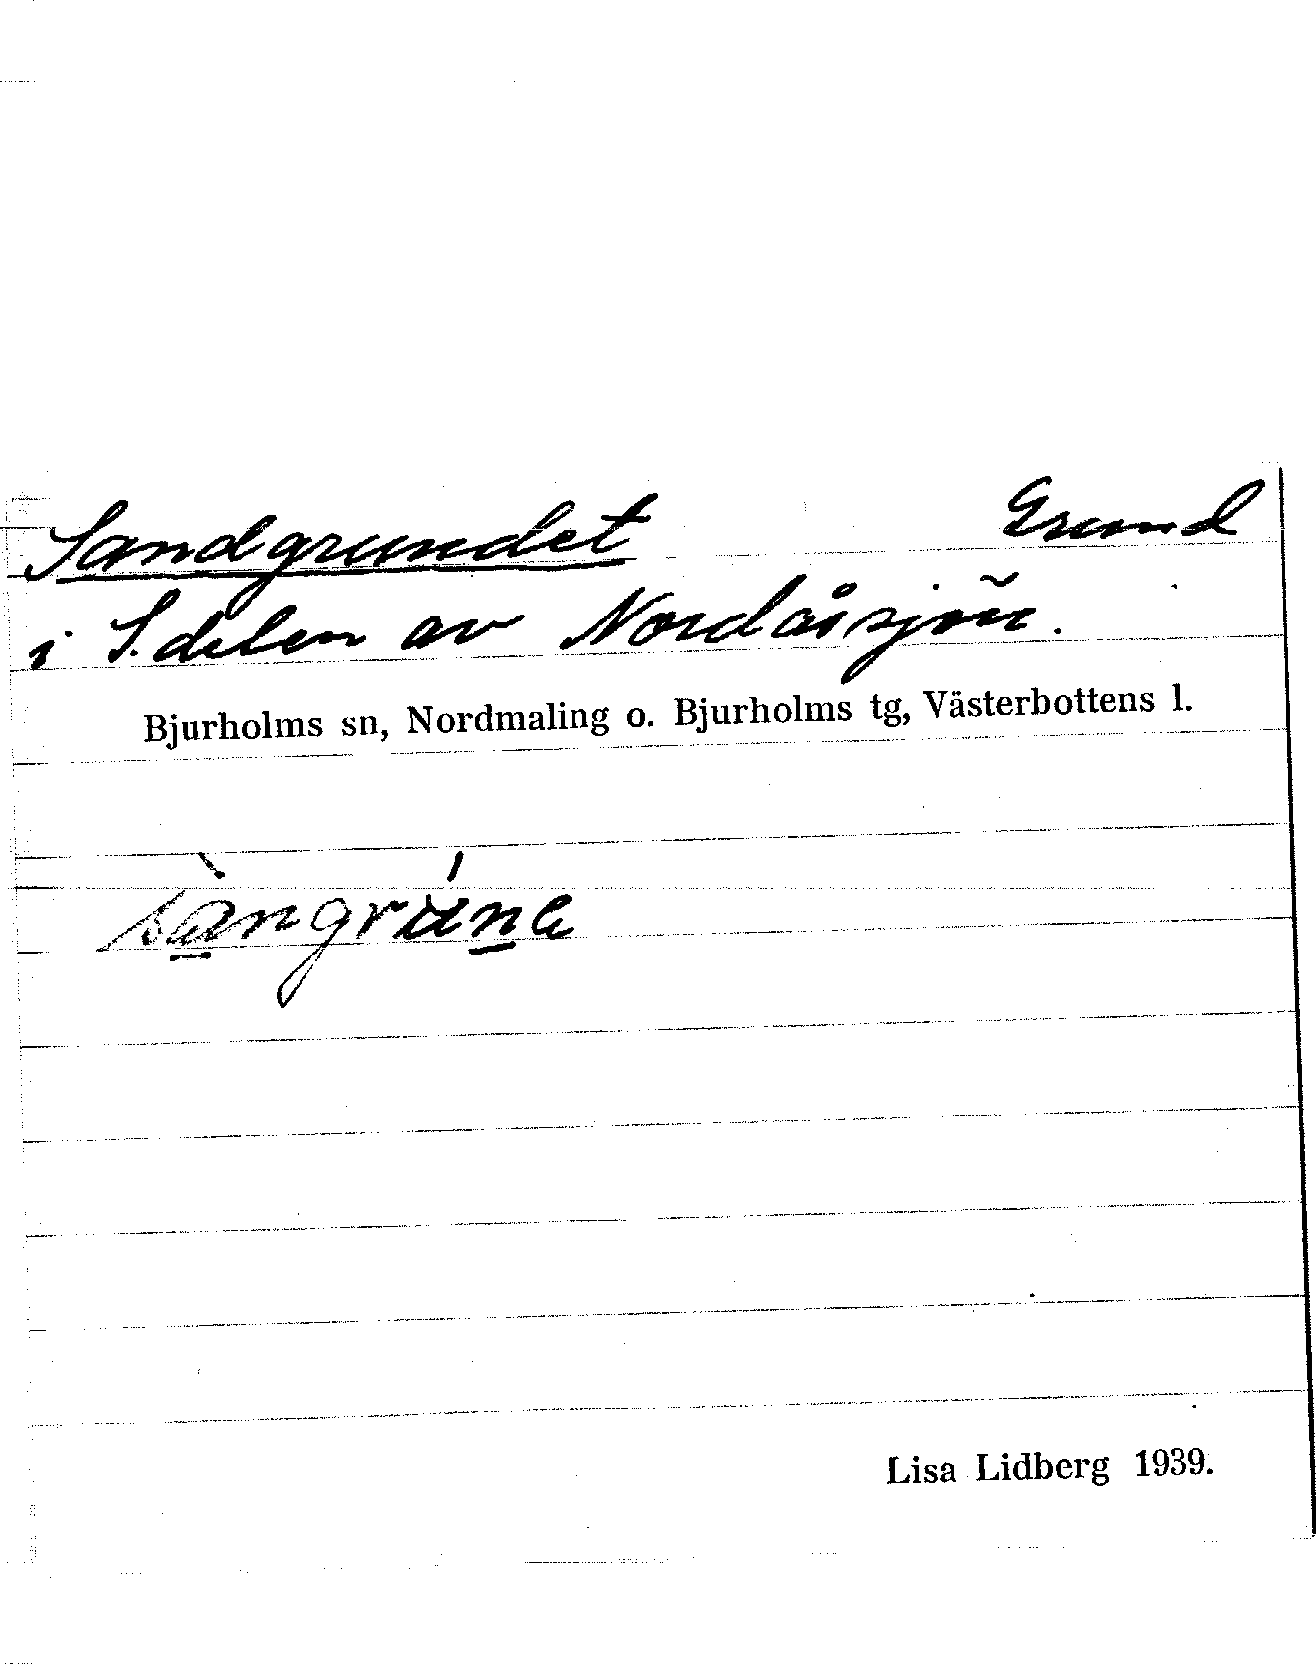 Sandgrundet Grund
i S. delen av Nordåsjön.
Bjurholms sn, Nordmaling o. Bjurholms tg, Västerbottens l.
Lisa Lidberg 1939.